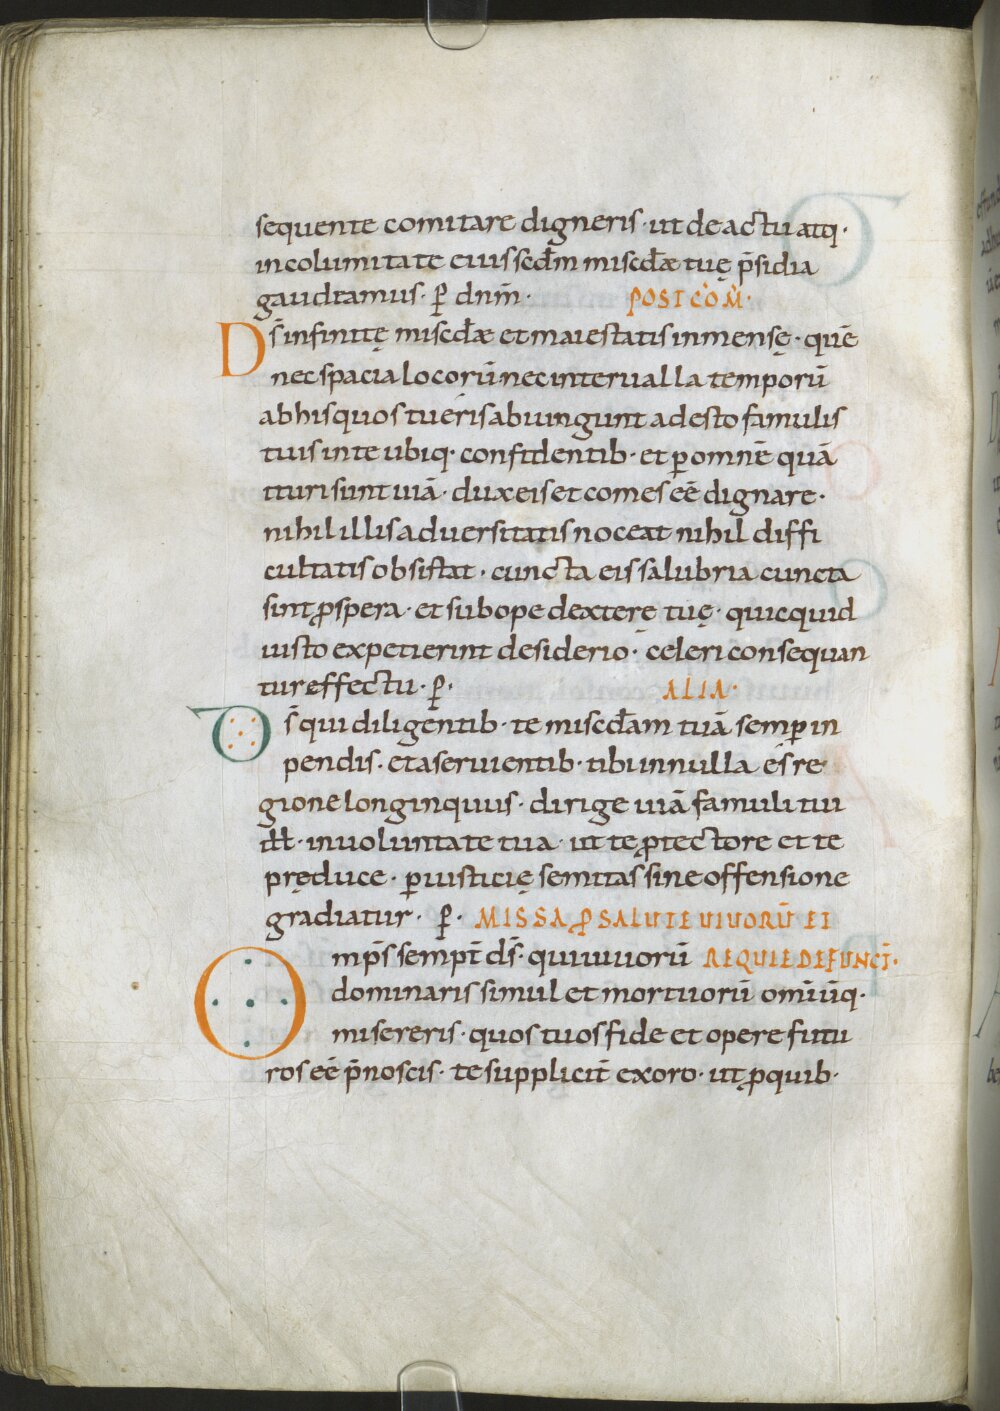 sequente comitare digneris · ut de actu atq·
incolumitate eius scdm̄ miscdæ tuę p̄sidia
gaudeamus · ꝑ dn̄m · POST COM̄·
Ds̄ infinitę miscdæ et maiestatis inmensę · quē
nec spacia locorū nec interualla temporū
ab his quos tueris abiungunt adesto famulis
tuis in te ubiq· confidentib· et ꝑ omnē quā
ituri sunt uiā · dux eis et comes eē dignare ·
nihil illis aduersitatis noceat nihil diffi
cultatis obsistat · cuncta eis salubria cuncta
sint ꝓspera · et sub ope dexterę tuę · quicquid
iusto expetierint desiderio · celeri consequan
tur effectu · ꝑ · ALIA·
Ds̄ qui diligentib· te miscdam tuā semꝑ in
pendis · et a seruientib· tibi in nulla es re
gione longinquus · dirige uiā famuli tui
ill · in uoluntate tua · ut te ꝓtectore et te
pręduce · ꝑ iusticię semitas sine offensione
gradiatur · ꝑ · MISSA ꝓ SALUTE UIUORŪ ET
Omp̄s sempt̄ ds̄ · qui uiuorū REQUIE DEFUNCT̄·
dominaris simul et mortuorū omīūq·
misereris · quos tuos fide et opere futu
ros eē p̄noscis · te supplicit̄ exoro · ut ꝓ quib·